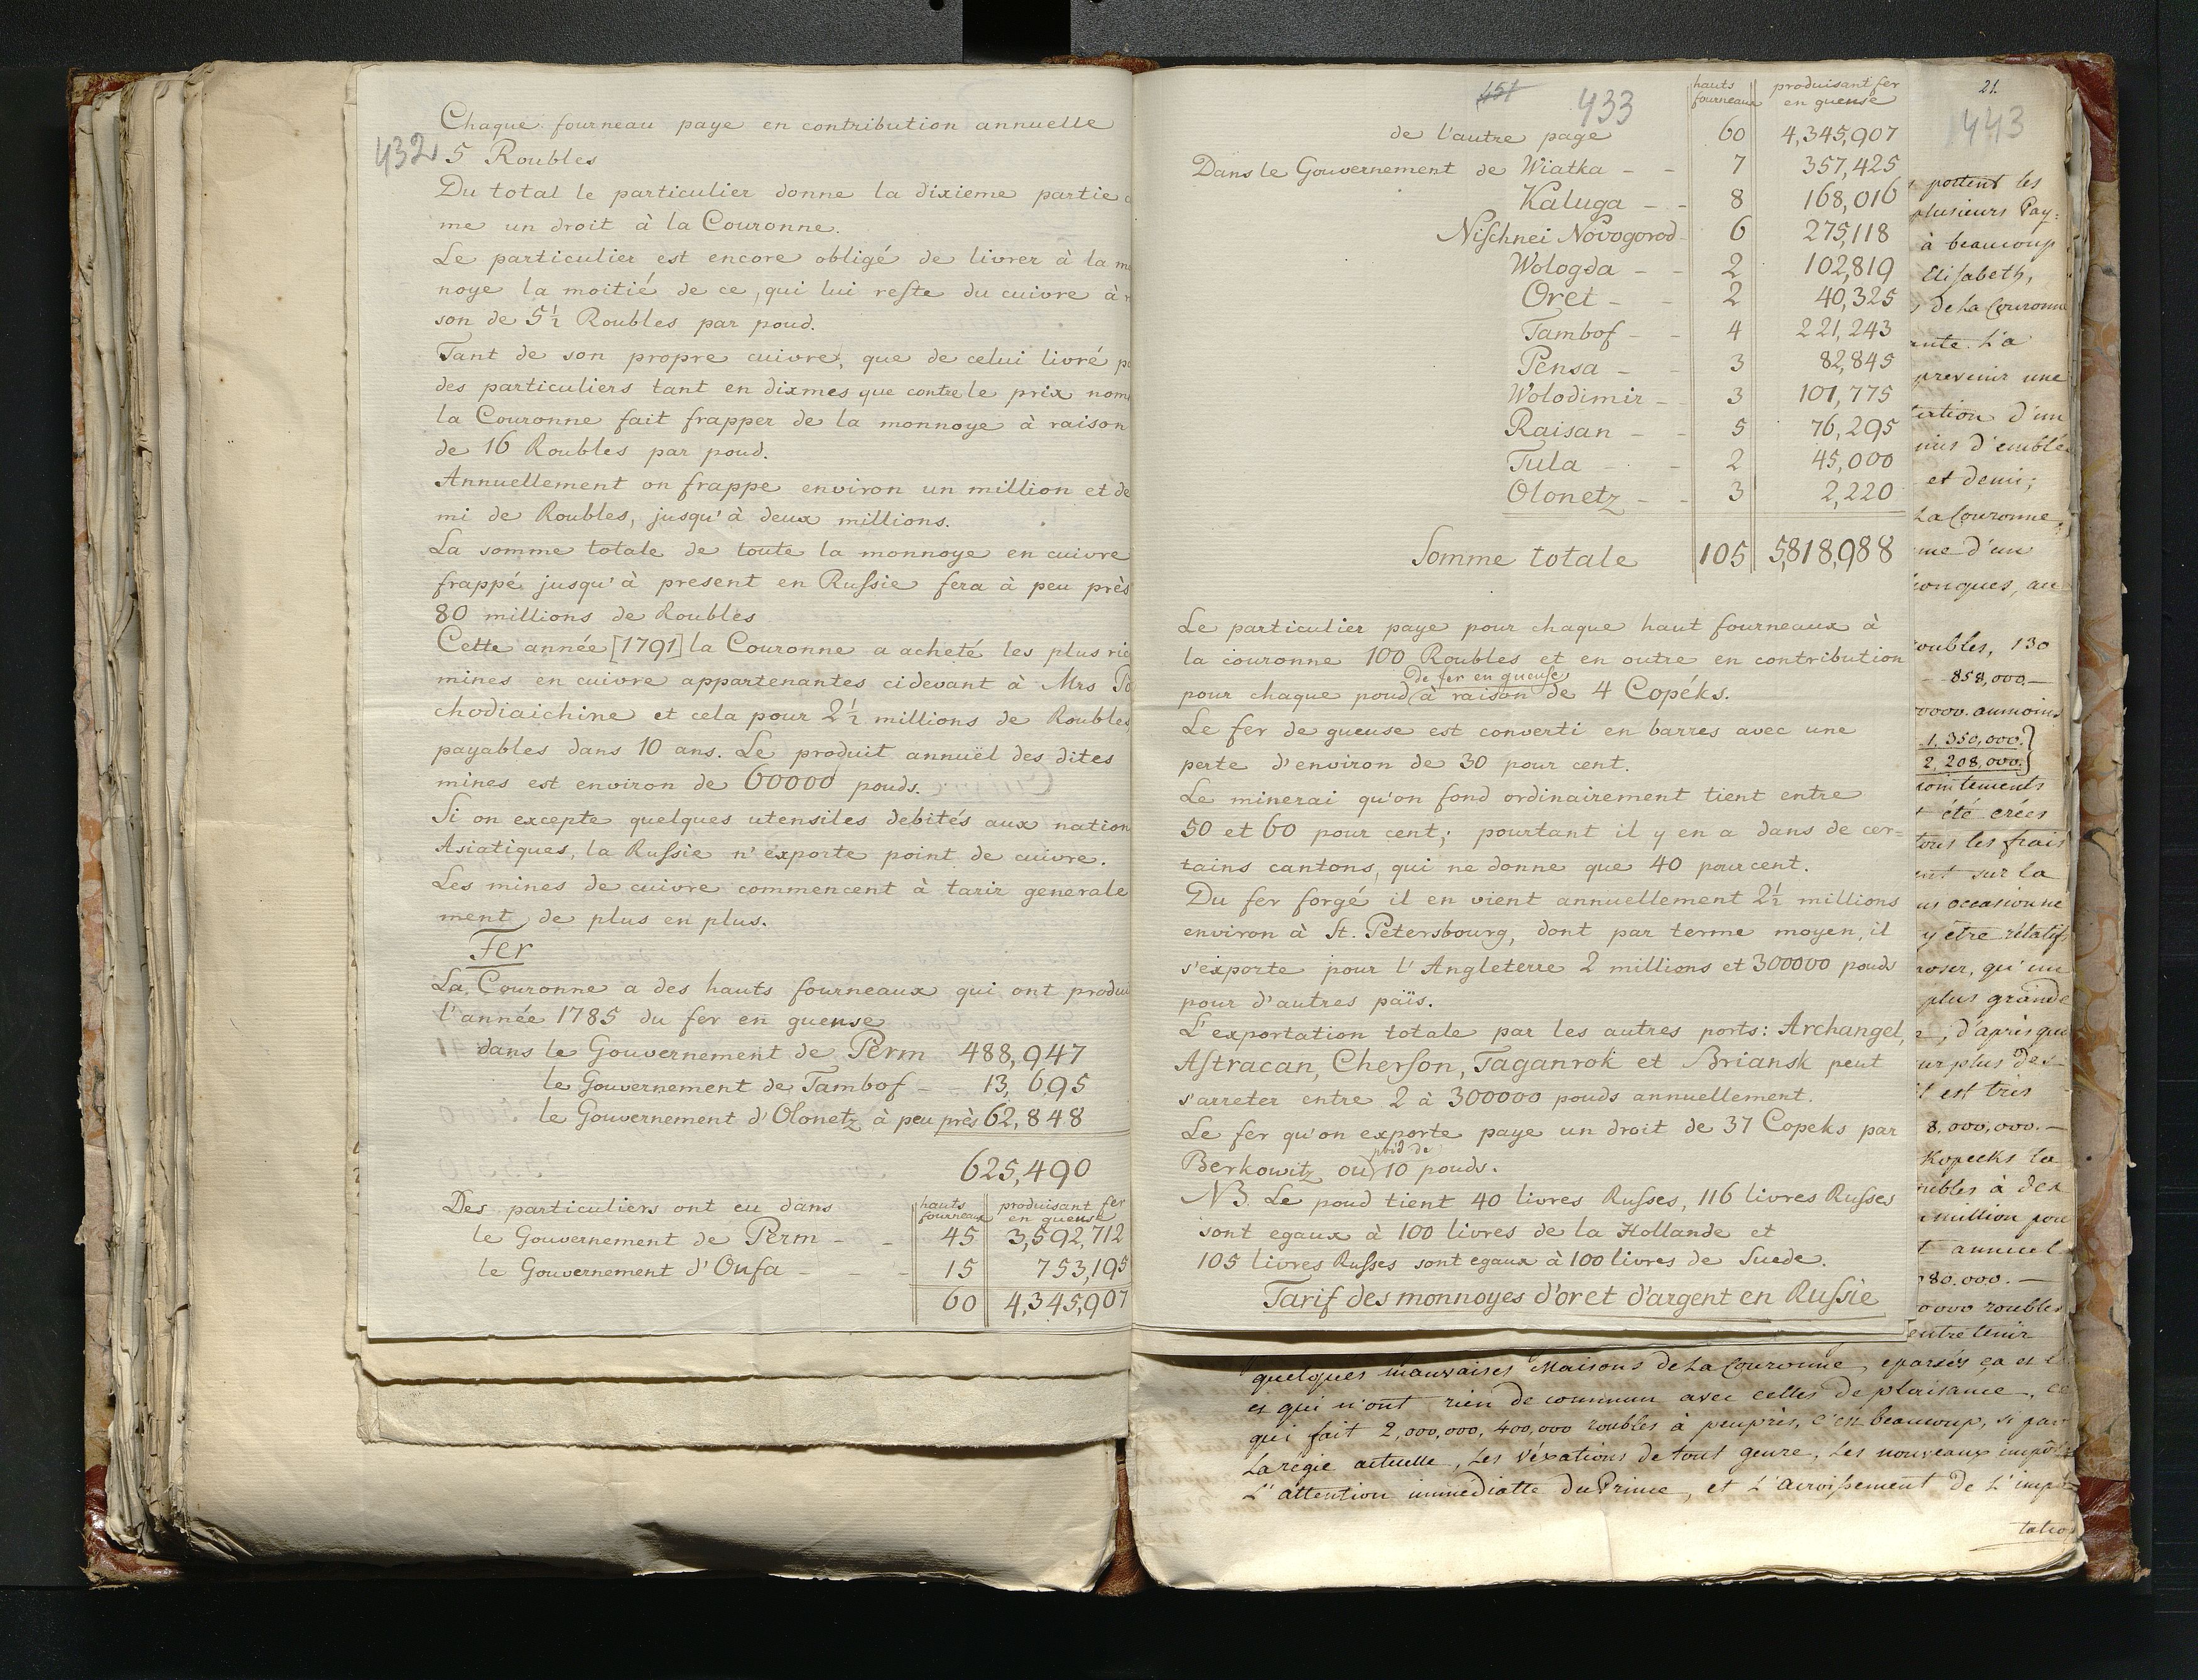 432
Chaque fourneau paye en contribution annuelle
5 Roubles
Du total le particulier donne la dixieme partie
me un droit à la Couronne.
Le particulier est encore obligé de livrer à la
noye la moitié de ce, qui lui reste du cuivre à
son de 5½ Roubles par poud.
Tant de son propre cuivre, que de celui livré
des particuliers tant en dixmes que contre le prix nom
la Couronne fait frapper de la monnoye à raison
de 16 Roubles par poud.
Annuellement on frappe environ un million et de
mi de Roubles, jusqu'à deux millions.
La somme totale de toute la monnoye en cuivre
frappé jusqu'à present en Russie fera à peu près
80 millions de Roubles
Cette année [1791] la Couronne a acheté les plus ric
mines en cuivre appartenantes cidevant à Mrs Po
chodiaichine et cela pour 2½ millions de Roubles,
payables dans 10 ans. Le produit annuël des dites
mines est environ de 60000 pouds.
Si on excepte quelques utensiles debités aux nation
Asiatiques, la Russie n'exporte point de cuivre.
Les mines de cuivre commencent à tarir generale
ment de plus en plus.
Fer
La Couronne a des hauts fourneaux qui ont produ
l'année 1785 du fer en gueuse
dans le Gouvernement de Perm 488,947
le Gouvernement de Tambof - - 13,695
le Gouvernement d'Olonetz à peu près 62,848
625,490
Des particuliers ont eu dans hauts fourneaux produisant fer en gueuse
le Gouvernement de Perm - - 45 3,592,712
le Gouvernement d'Oufa - - - 15 753,195
60 4,345,907
451 433
hauts fourneaux produisant fer en gueuse
de l'autre page 60 4,345,907
Dans le Gouvernement de Wiatka - - 7 357,425
Kaluga - - 8 168,016
Nischnei Novogorod - 6 275,118
Wologda - - 2 102,819
Orel - - 2 40,325
Tambof - - 4 221,243
Pensa - - 3 82,845
Wolodimir - - 3 101,775
Raisan - - 5 76,295
Tula - - 2 45,000
Olonetz - - 3 2,220
Somme totale 105 5,818,988
Le particulier paye pour chaque haut fourneaux à
la couronne 100 Roubles et en outre en contribution
de fer en gueuse
pour chaque poud à raison de 4 Copéks.
Le fer de gueuse est converti en barres avec une
perte d'environ de 30 pour cent.
Le minerai qu'on fond ordinairement tient entre
50 et 60 pour cent; pourtant il y en a dans de cer=
tains cantons, qui ne donne que 40 pourcent.
Du fer forgé il en vient annuellement 2½ millions
environ à St. Petersbourg, dont par terme moyen, il
s'exporte pour l'Angleterre 2 millions et 300000 pouds
pour d'autres païs.
L'exportation totale par les autres ports: Archangel,
Astracan, Cherson, Taganrok et Briansk peut
s'arreter entre 2 à 300000 pouds annuellement.
Le fer qu'on exporte paye un droit de 37 Copeks par
poid de
Berkowitz ou 10 pouds.
NB. Le poud tient 40 livres Russes, 116 livres Russes
sont egaux à 100 livres de la Hollande et
105 livres Russes sont egaux à 100 livres de Suede.
Tarif des monnoyes d'or et d'argent en Russie
21.
443
portent les
plusieurs Pay=
à beaucoup
Elisabeth,
de La Couronne
La
prevenir une
d'un
d'emblé
et demi;
La Couronne,
me d'un
au
oubles, 130
858,000.-
aumoins
1. 350,000.
2, 208,000.
été crées
tous les frais
sur la
occasionne
y être rélatifs
qu'une
plus grande
d'après que
plus des
il est tres
8,000,000.-
Kopecks la
million
annuel
80.000.-
roubles
entretenir
quelques mauvaises Maisons de La Couronne, eparses ça et
et qui n'ont rien de commun avec celles de plaisance,
qui fait 2,000,000, 400,000 roubles à peuprès, c'est beaucoup, si par
La régie actuelle, Les véxations de tout genre, Les nouveaux impôts
L'attention immédiatte du Prince, et L'acroissement de L'impo